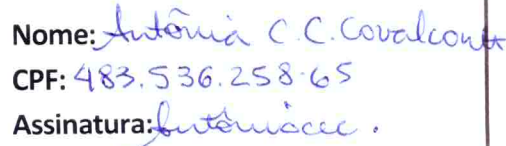 Nome: Antônia C. C. Covalcont
CPF: 483.536.258-65
Assinatura: Antôniaccc.